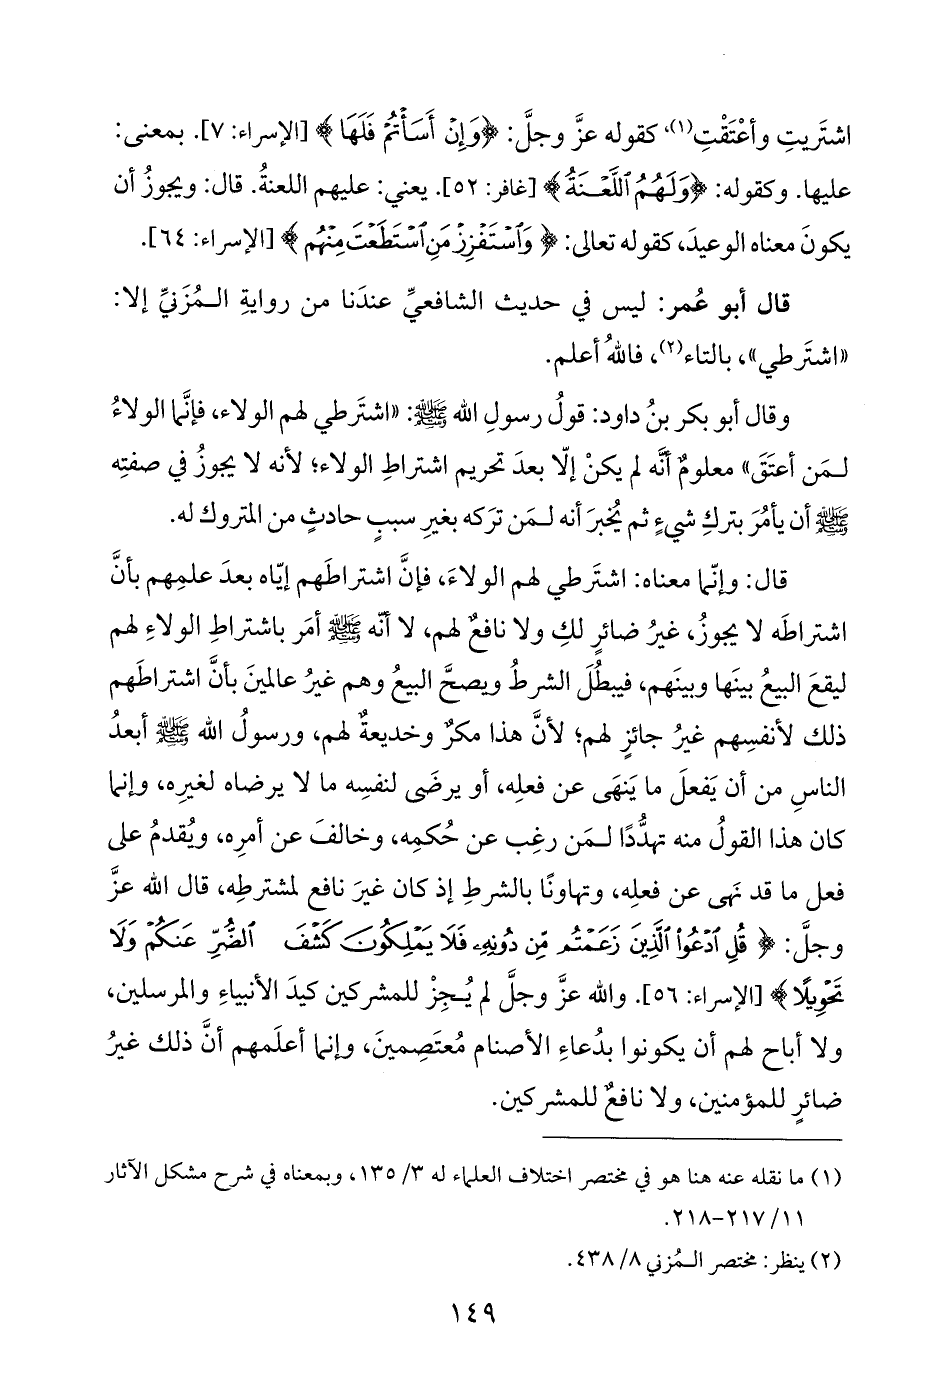 اشتَريتِ وأعْتَقْتِ(١)، كقوله عزَّ وجلَّ: ﴿وَإِنْ أَسَأْتُمْ فَلَهَا﴾ [الإسراء: ٧]. بمعنى:
عليها. وكقوله: ﴿وَلَهُمُ ٱللَّعْنَةُ﴾ [غافر: ٥٢]. يعني: عليهم اللعنةُ. قال: ويجوزُ أن
يكونَ معناه الوعيدَ، كقوله تعالى: ﴿وَٱسْتَفْزِزْ مَنِ ٱسْتَطَعْتَ مِنْهُم﴾ [الإسراء: ٦٤].
قال أبو عُمر: ليس في حديث الشافعيِّ عندَنا من روايةِ المُزَنيِّ إلا:
«اشتَرطي»، بالتاء(٢)، فاللهُ أعلم.
وقال أبو بكر بنُ داود: قولُ رسولِ الله ﷺ: «اشتَرطي لهم الولاء، فإنَّما الولاءُ
لمَن أعتَقَ» معلومٌ أنَّه لم يكنْ إلّا بعدَ تحريم اشتراطِ الولاء؛ لأنه لا يجوزُ في صفتِه
ﷺ أن يأمُرَ بتركِ شيءٍ ثم يُخبرَ أنه لمَن تركه بغيرِ سببٍ حادثٍ من المتروك له.
قال: وإنّما معناه: اشتَرطي لهم الولاءَ، فإنَّ اشتراطَهم إيّاه بعدَ علمِهم بأنَّ
اشتراطَه لا يجوزُ، غيرُ ضائرٍ لكِ ولا نافعٌ لهم، لا أنّه ﷺ أمَر باشتراطِ الولاءِ لهم
ليقعَ البيعُ بينَها وبينَهم، فيبطُلَ الشرطُ ويصحَّ البيعُ وهم غيرُ عالمينَ بأنَّ اشتراطَهم
ذلك لأنفسِهم غيرُ جائزٍ لهم؛ لأنَّ هذا مكرٌ وخديعةٌ لهم، ورسولُ الله ﷺ أبعدُ
الناسِ من أن يَفعلَ ما يَنهَى عن فعلِه، أو يرضَى لنفسِه ما لا يرضاه لغيرِه، وإنما
كان هذا القولُ منه تهدُّدًا لمَن رغِب عن حُكمِه، وخالفَ عن أمرِه، ويُقدمُ على
فعل ما قد نهَى عن فعلِه، وتهاونًا بالشرطِ إذ كان غيرَ نافع لمشترطِه، قال الله عزَّ
وجلَّ: ﴿قُلِ ٱدْعُوا۟ ٱلَّذِينَ زَعَمْتُم مِّن دُونِهِۦ فَلَا يَمْلِكُونَ كَشْفَ ٱلضُّرِّ عَنكُمْ وَلَا
تَحْوِيلًا﴾ [الإسراء: ٥٦]. والله عزَّ وجلَّ لم يُجِزْ للمشركين كيدَ الأنبياءِ والمرسلين،
ولا أباح لهم أن يكونوا بدُعاءِ الأصنام مُعتَصِمينَ، وإنما أعلَمهم أنَّ ذلك غيرُ
ضائرٍ للمؤمنين، ولا نافعٌ للمشركين.
(١) ما نقله عنه هنا هو في مختصر اختلاف العلماء له ٣/ ١٣٥، وبمعناه في شرح مشكل الآثار
١١/ ٢١٧-٢١٨.
(٢) ينظر: مختصر المُزني ٨/ ٤٣٨.
١٤٩